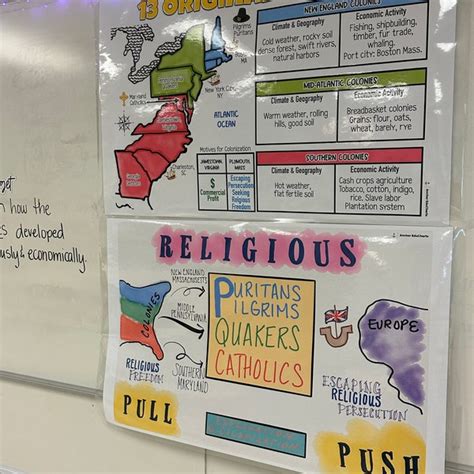 13 ORIGINAL
Pilgrims
Puritans
MA
New York City, NY
Maryland
Catholics
ATLANTIC
OCEAN
Charleston, SC
NEW ENGLAND COLONIES
Climate & Geography
Economic Activity
Cold weather, rocky soil
dense forest, swift rivers,
natural harbors
Fishing, shipbuilding,
timber, fur trade,
whaling.
Port city: Boston Mass.
MID-ATLANTIC COLONIES
Climate & Geography
Economic Activity
Warm weather, rolling
hills, good soil
Breadbasket colonies
Grains: flour, oats,
wheat, barely, rye
SOUTHERN COLONIES
Climate & Geography
Economic Activity
Hot weather,
flat fertile soil
Cash crops agriculture
Tobacco, cotton, indigo,
rice. Slave labor
Plantation system
Motives for Colonization
JAMESTOWN, VIRGINIA
PLYMOUTH, MASS
$
Commercial
Profit
Escaping
Persecution
Seeking
Religious
Freedom
n how the
s developed
ously & economically.
RELIGIOUS
COLONIES
NEW ENGLAND
MASSACHUSETTS
MIDDLE
PENNSYLVANIA
SOUTHERN
MARYLAND
RELIGIOUS
FREEDOM
PURITANS
PILGRIMS
QUAKERS
CATHOLICS
EUROPE
ESCAPING
RELIGIOUS
PERSECUTION
PULL
PUSH